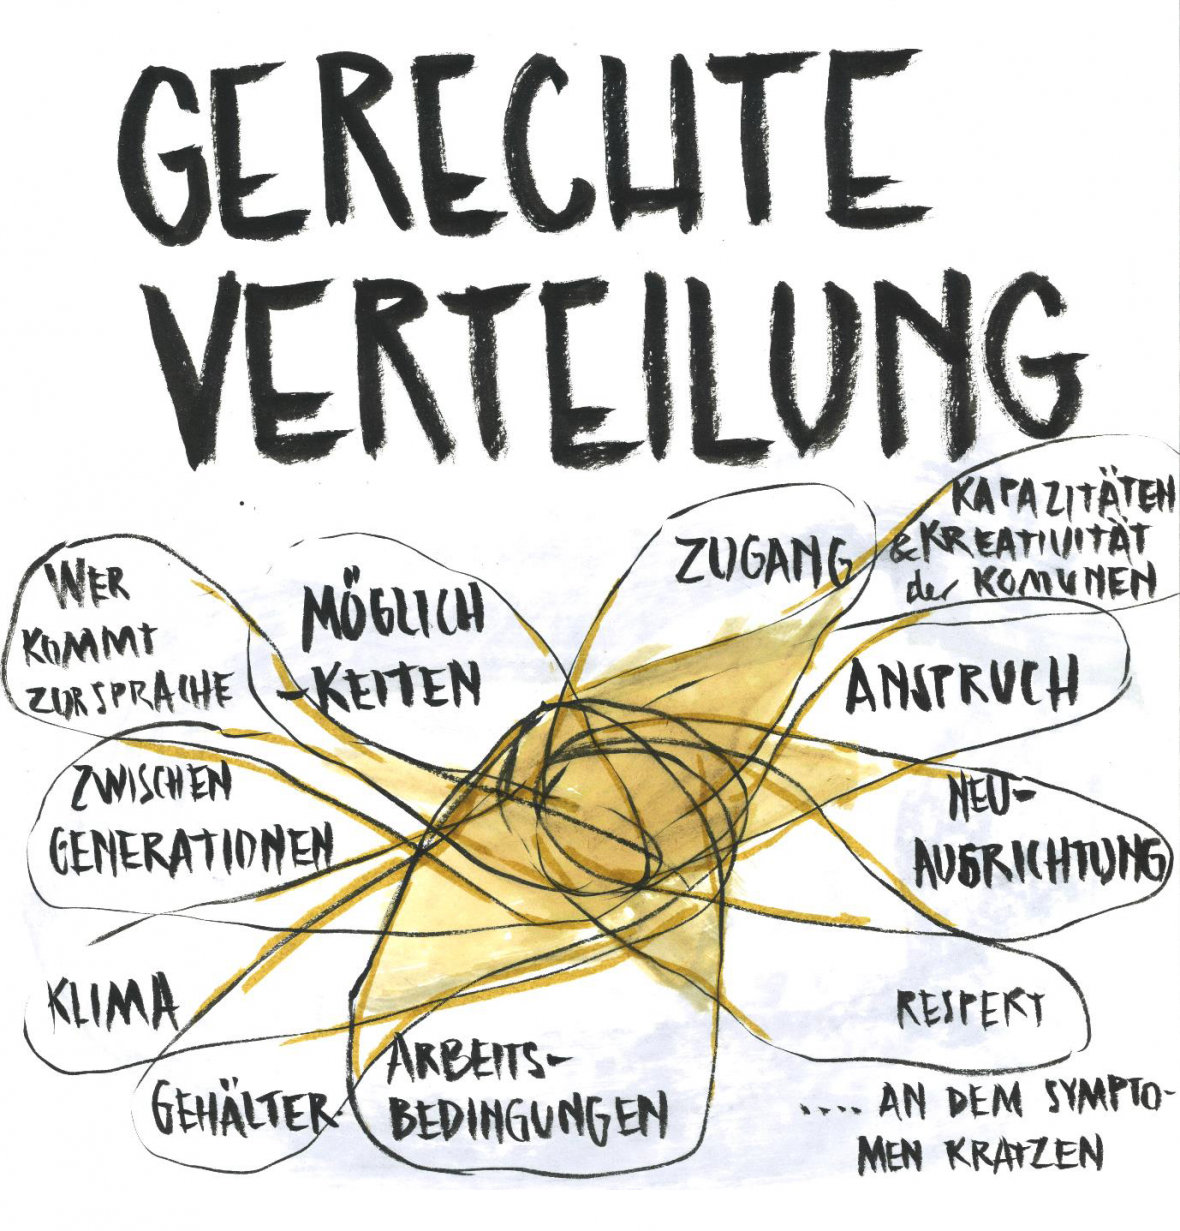 GERECHTE
VERTEILUNG
WER
KOMMT
ZUR SPRACHE
MÖGLICH
-KEITEN
ZUGANG
KAPAZITÄTEN
& KREATIVITÄT
der KOMUNEN
ANSPRUCH
ZWISCHEN
GENERATIONEN
NEU-
AUSRICHTUNG
KLIMA
RESPEKT
GEHÄLTER
ARBEITS-
BEDINGUNGEN
.... AN DEM SYMPTO-
MEN KRATZEN